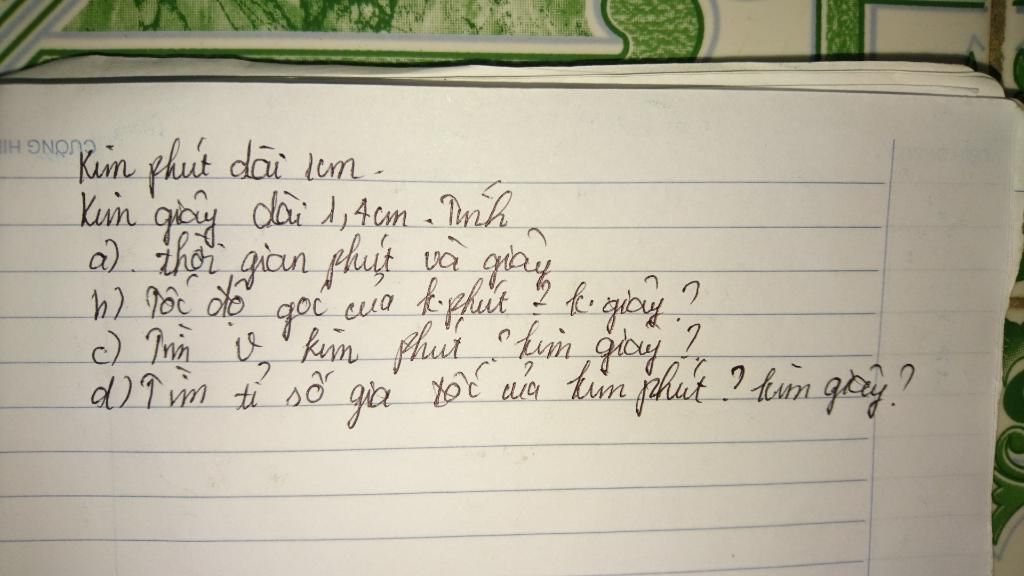 Kim phút dài 1cm.
Kim giây dài 1,4cm. Tính
a). thời gian phút và giây
b) Tốc độ góc của k.phút ? k.giây ?
c) Tìm v kim phút ? kim giây ?
d) Tìm tỉ số gia tốc của kim phút ? kim giây ?